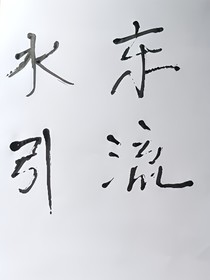 水东
引流